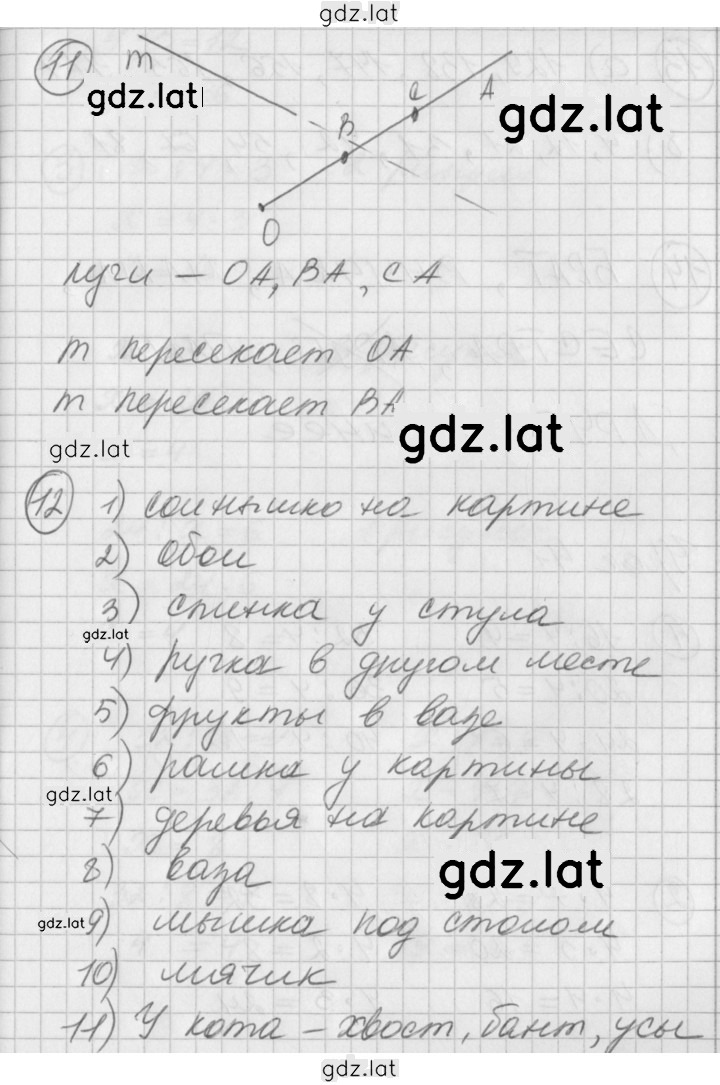 gdz.lat
11 m
gdz.lat
C A
gdz.lat
B
O
лучи – OA, BA, CA
m пересекает OA
m пересекает BA
gdz.lat
gdz.lat
12 1) солнышко на картине
2) обои
3) спинка у стула
gdz.lat
4) ручка в другом месте
5) фрукты в вазе
6) рамка у картины
gdz.lat
7) деревья на картине
8) ваза
gdz.lat
gdz.lat 9) мышка под столом
10) мячик
11) У кота – хвост, бант, усы
gdz.lat